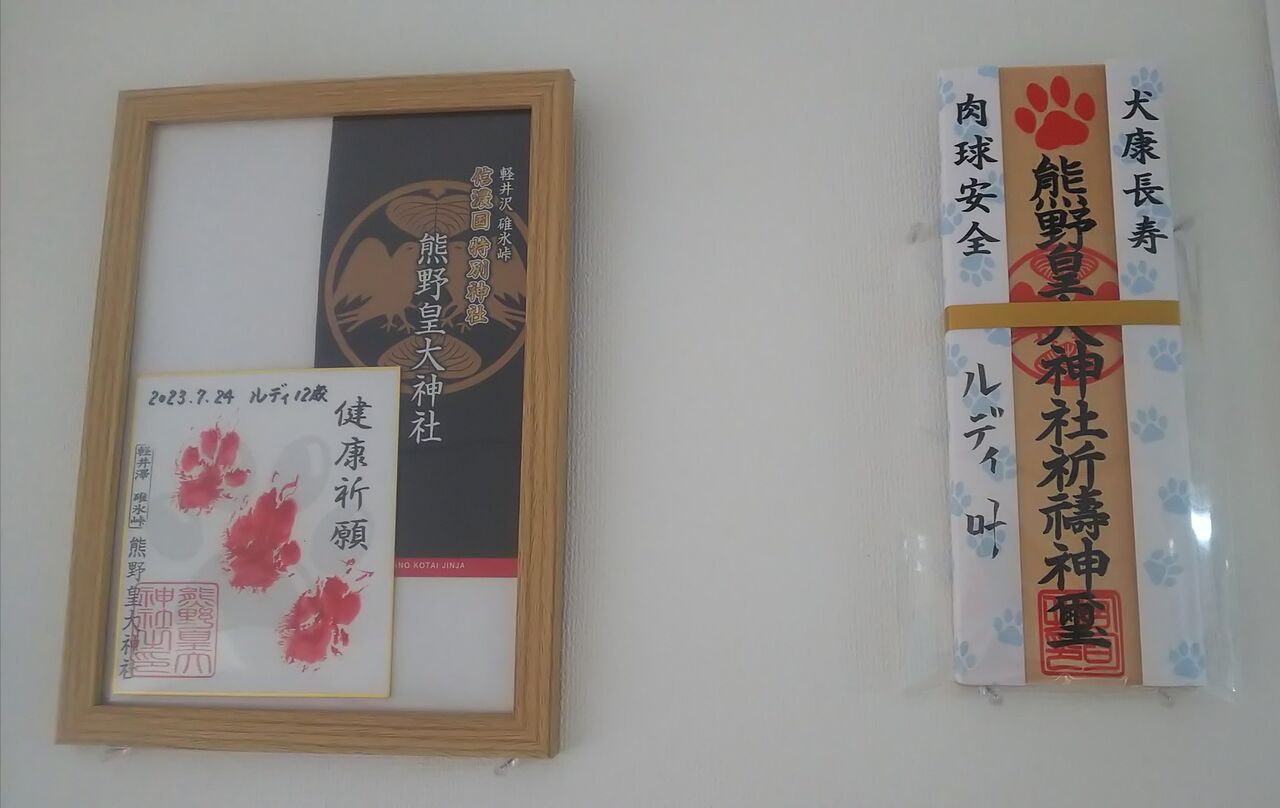 軽井沢 碓氷峠
信濃国 特別神社
熊野皇大神社
ANO KOTAI JINJA
2023.7.24 ルディ12歳
健康祈願
軽井澤 碓氷峠
熊野皇大神社
熊野皇大
神社之印
犬康長寿
熊野皇大神社祈禱神璽
肉球安全
ルディ 叶